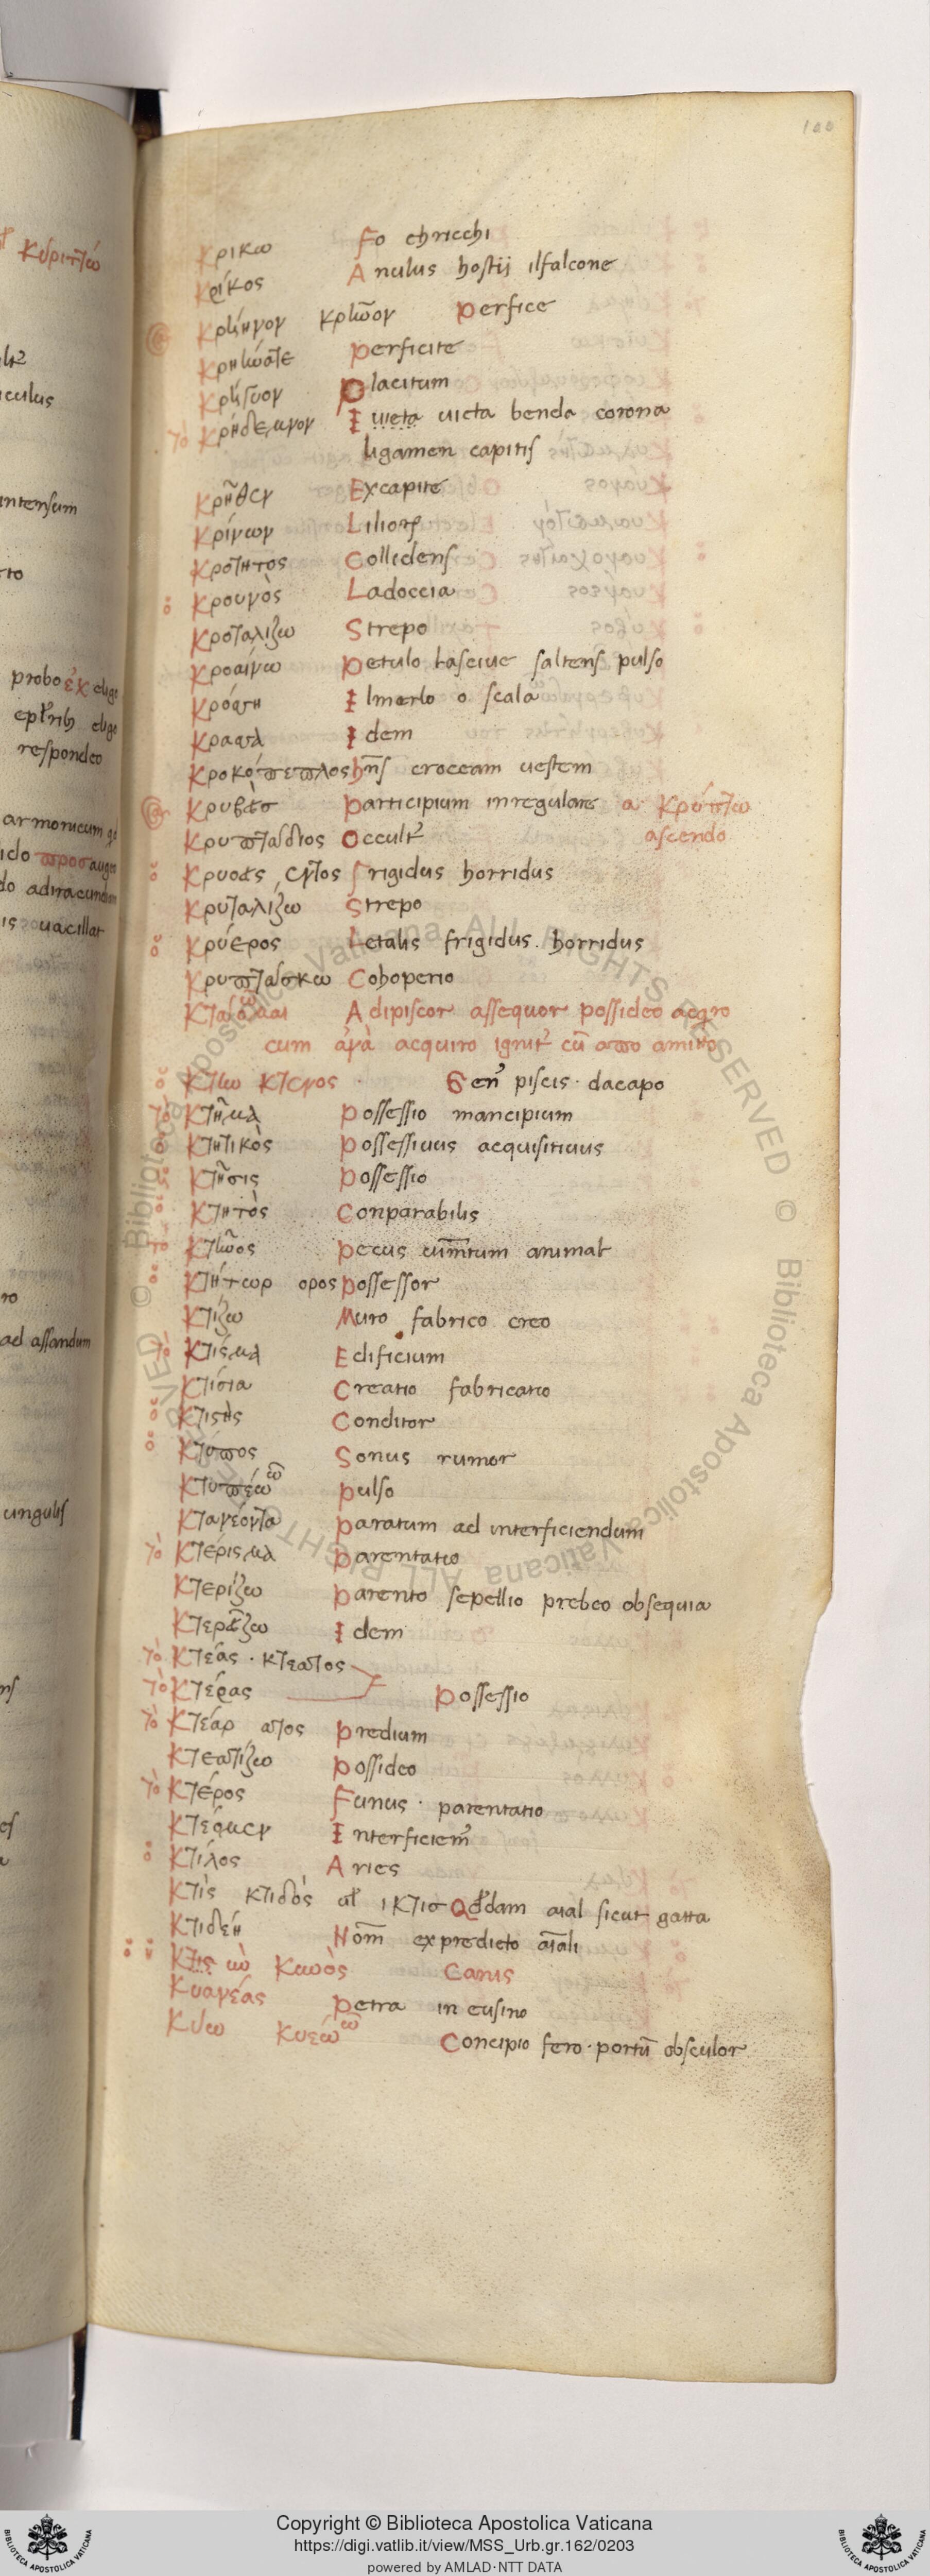 100
κρικω Fo chricchi
κρίκος Anulus hostij ilfalcone
κρήηνον κρῆῶον perfice
κρηώσῖε perficite
κρήγυον placitum
τὸ κρήδεμνον Iuieta uicta benda corona
ligamen capitis
κρῆθεν Excapite
κρίνων Liliorum
κροτητος Collidens
ὁ κρουνὸς Ladoccia
κροταλιζω Strepo
κροαίνω petulo lasciue saltens pulso
κρόσση Ilmerlo o scala
Idem
κροκόπεπλος hns croceam uestem
κρυβδσ participium inregulare a κρύπτω
ascendo
κρυπταδιος Occult
κρυοεις εντος frigidus horridus
κρυταλιζω Strepo
ὁ κρύερος Letalis frigidus. horridus
κρυπτασκω Cohoperio
κταομαι Adipiscor assequor possideo acqro
cum ἀνὰ acquiro ignit cū απο amitto
κτενος Gen piscis · dacapo
τὸ κτῆμα possessio mancipium
κτητικὸς possessiuus acquisitiuus
κτῆσις possessio
κτητὸς Conparabilis
το κτῆνος pecus iumtum animal
κτήτωρ ορος possessor
κτίζω Muro fabrico creo
τὸ κτίσμα Edificium
κτίσια Creatio fabricatio
κτιστὴς Conditor
ὁ κτύπος Sonus rumor
κτυπέω ῶ pulso
κτανέοντα paratum ad interficiendum
τὸ κτέρισμα parentatio
κτερίζω parento sepellio prebeo obsequia
Idem
τὸ κτέας · κτεατος
τὸ κτέρας possessio
τὸ κτέαρ ατος predium
κτεατίζω possideo
τὸ κτέρος Funus · parentatio
Interficiem
ὁ κτίλος Aries
κτὶς κτιδὸς ικτισ Qddam aial sicut gatta
κτιδέη Nom expredicto aiali
Canis
κυανέας petra in eusino
κύω κυεώ ῶ Concipio fero · portū obsculor
Copyright © Biblioteca Apostolica Vaticana
https://digi.vatlib.it/view/MSS_Urb.gr.162/0203
powered by AMLAD·NTT DATA